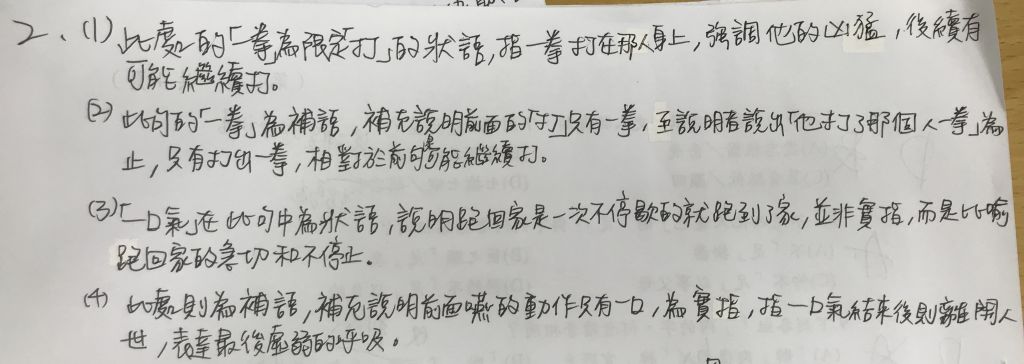 2、(1) 此處的「一拳」為限定「打」的狀語,指一拳打在那人身上,強調他的凶猛,後續有
可能繼續打。
(2) 此句的「一拳」為補語,補充說明前面的「打」只有一拳,至說明者說出「他打了那個人一拳」為
止,只有打出一拳,相對於前句可能繼續打。
(3)「一口氣」在此句中為狀語,說明跑回家是一次不停歇的就跑到了家,並非實指,而是比喻
跑回家的急切和不停止。
(4) 此處則為補語,補充說明前面嚥的動作只有一口,為實指,指一口氣結束後則離開人
世,表達最後虛弱的呼吸。